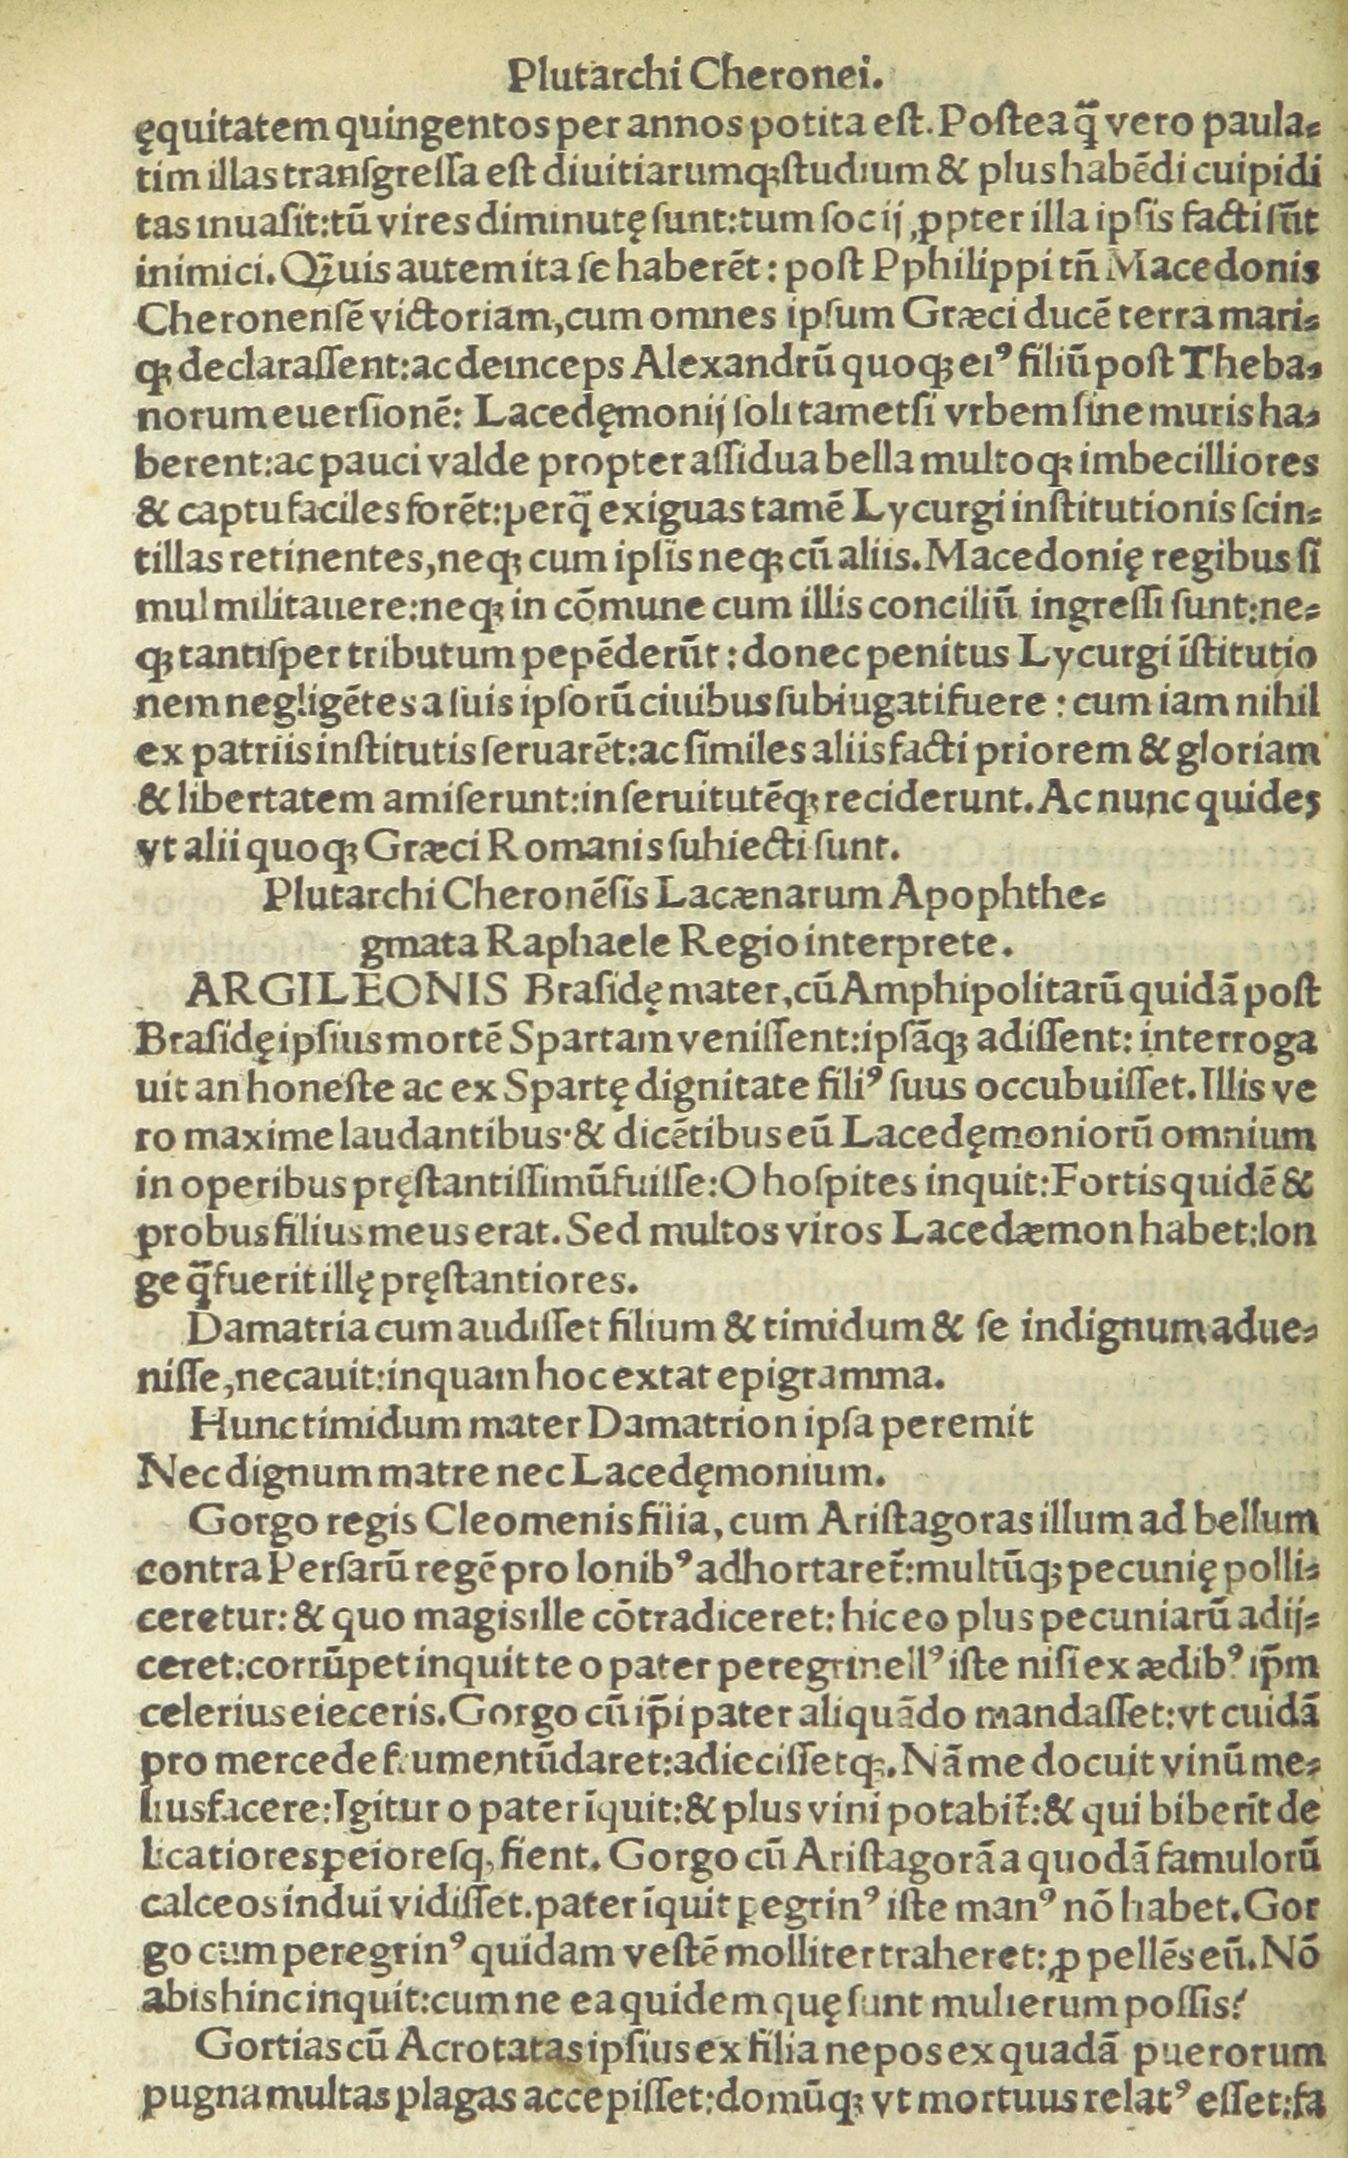 Plutarchi Cheronei.
ęquitatem quingentos per annos potita eſt. Poſtea q̃ vero paula-
tim illas tranſgreſſa eſt diuitiarumqꝫ ſtudium & plus habēdi cuipidi
tas inuaſit: tū vires diminutę ſunt: tum ſocij ꝓpter illa ipſis facti ſūt
inimici. Quis autem ita ſe haberēt: poſt Pphilippi tñ Macedonis
Cheronenſē victoriam, cum omnes ipſum Græci ducē terra mari-
qꝫ declaraſſent: ac deinceps Alexandrū quoqꝫ eiꝰ filiū poſt Theba-
norum euerſionē: Lacedęmonij ſoli tametſi vrbem ſine muris ha-
berent: ac pauci valde propter aſſidua bella multoqꝫ imbecilliores
& captu faciles forēt: perq̃ exiguas tamē Lycurgi inſtitutionis ſcin-
tillas retinentes, neqꝫ cum ipſis neqꝫ cū aliis. Macedonię regibus ſi
mul militauere: neqꝫ in cōmune cum illis conciliū ingreſſi ſunt: ne-
qꝫ tantiſper tributum pepēderūt: donec penitus Lycurgi īſtitutio
nem negligētes a ſuis ipſorū ciuibus ſubiugati fuere: cum iam nihil
ex patriis inſtitutis ſeruarēt: ac ſimiles aliis facti priorem & gloriam
& libertatem amiſerunt: in ſeruitutēqꝫ reciderunt. Ac nunc quideꝫ
vt alii quoqꝫ Græci Romanis ſuhiecti ſunt.
Plutarchi Cheronēſis Lacænarum Apophthe-
gmata Raphaele Regio interprete.
ARGILEONIS Braſidę mater, cū Amphipolitarū quidā poſt
Braſidę ipſius mortē Spartam veniſſent: ipſāqꝫ adiſſent: interroga
uit an honeſte ac ex Spartę dignitate filiꝰ ſuus occubuiſſet. Illis ve
ro maxime laudantibus· & dicētibus eū Lacedęmoniorū omnium
in operibus pręſtantiſſimū fuiſſe: O hoſpites inquit: Fortis quidē &
probus filius meus erat. Sed multos viros Lacedæmon habet: lon
ge q̃ fuerit illę pręſtantiores.
Damatria cum audiſſet filium & timidum & ſe indignum adue-
niſſe, necauit: in quam hoc extat epigramma.
Hunc timidum mater Damatrion ipſa peremit
Nec dignum matre nec Lacedęmonium.
Gorgo regis Cleomenis filia, cum Ariſtagoras illum ad bellum
contra Perſarū regē pro Ionibꝰ adhortaret̃: multūqꝫ pecunię polli-
ceretur: & quo magis ille cōtradiceret: hic eo plus pecuniarū adij-
ceret: corrūpet inquit te o pater peregrinellꝰ iſte niſi ex ædibꝰ ip̄m
celerius eieceris. Gorgo cū ip̄i pater aliquādo mandaſſet: vt cuidā
pro mercede frumentū daret: adieciſſetqꝫ. Nā me docuit vinū me-
lius facere: Igitur o pater īquit: & plus vini potabit̃: & qui biberīt de
licatiores peioreſqꝫ fient. Gorgo cū Ariſtagorā a quodā famulorū
calceos indui vidiſſet. pater īquit ꝑegrinꝰ iſte manꝰ nō habet. Gor
go cum peregrinꝰ quidam veſtē molliter traheret: ꝓpellēs eū. Nō
abis hinc inquit: cum ne ea quidem quę ſunt mulierum poſſis?
Gortias cū Acrotatas ipſius ex filia nepos ex quadā puerorum
pugna multas plagas accepiſſet: domūqꝫ vt mortuus relatꝰ eſſet: fa